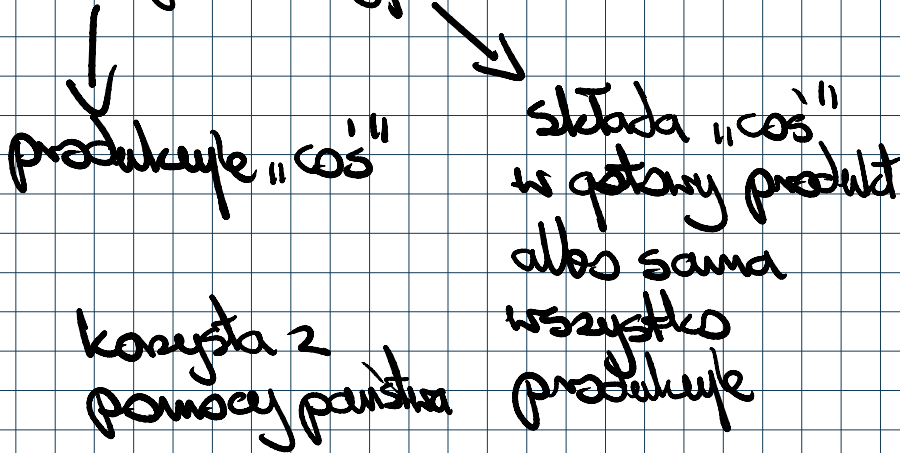 produkuje „coś"
korzysta z
pomocy państwa
składa „coś"
w gotowy produkt
albo sama
wszystko
produkuje